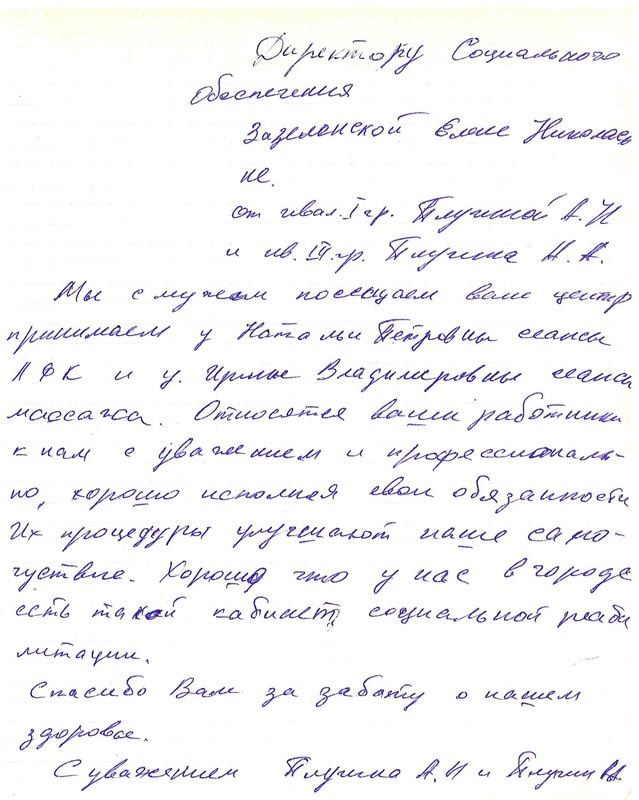 Директору Социального
Обеспечения
Зазелонской Елене Николаев
не.
от инвал. I гр. Плугиной А. И
и ив. III гр. Плугина Н. А.
Мы с мужем посещаем ваш центр
принимаем у Натальи Петровны сеансы
ЛФК и у. Ирины Владимировны сеансы
массажа. Относятся ваши работники
к нам с уважением и профессиональ-
но, хорошо исполняя свои обязанности
Их процедуры улучшают наше само-
чуствие. Хорошо что у нас в городе
есть такой кабинет социальной реаби
литации.
Спасибо Вам за заботу о нашем
здоровье.
С уважением Плугина А. И и Плугин